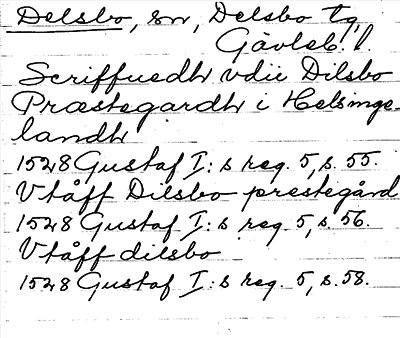 Delsbo, sn, Delsbo tg,
Gävleb. l.
Scriffuedh vdii Dilsbo
Præstegardh i Helsinge-
landh
1528 Gustaf I:s reg. 5, s. 55.
Vtåff Dilsbo prestegård
1528 Gustaf I:s reg. 5, s. 56.
Vtåff dilsbo
1528 Gustaf I:s reg. 5, s. 58.